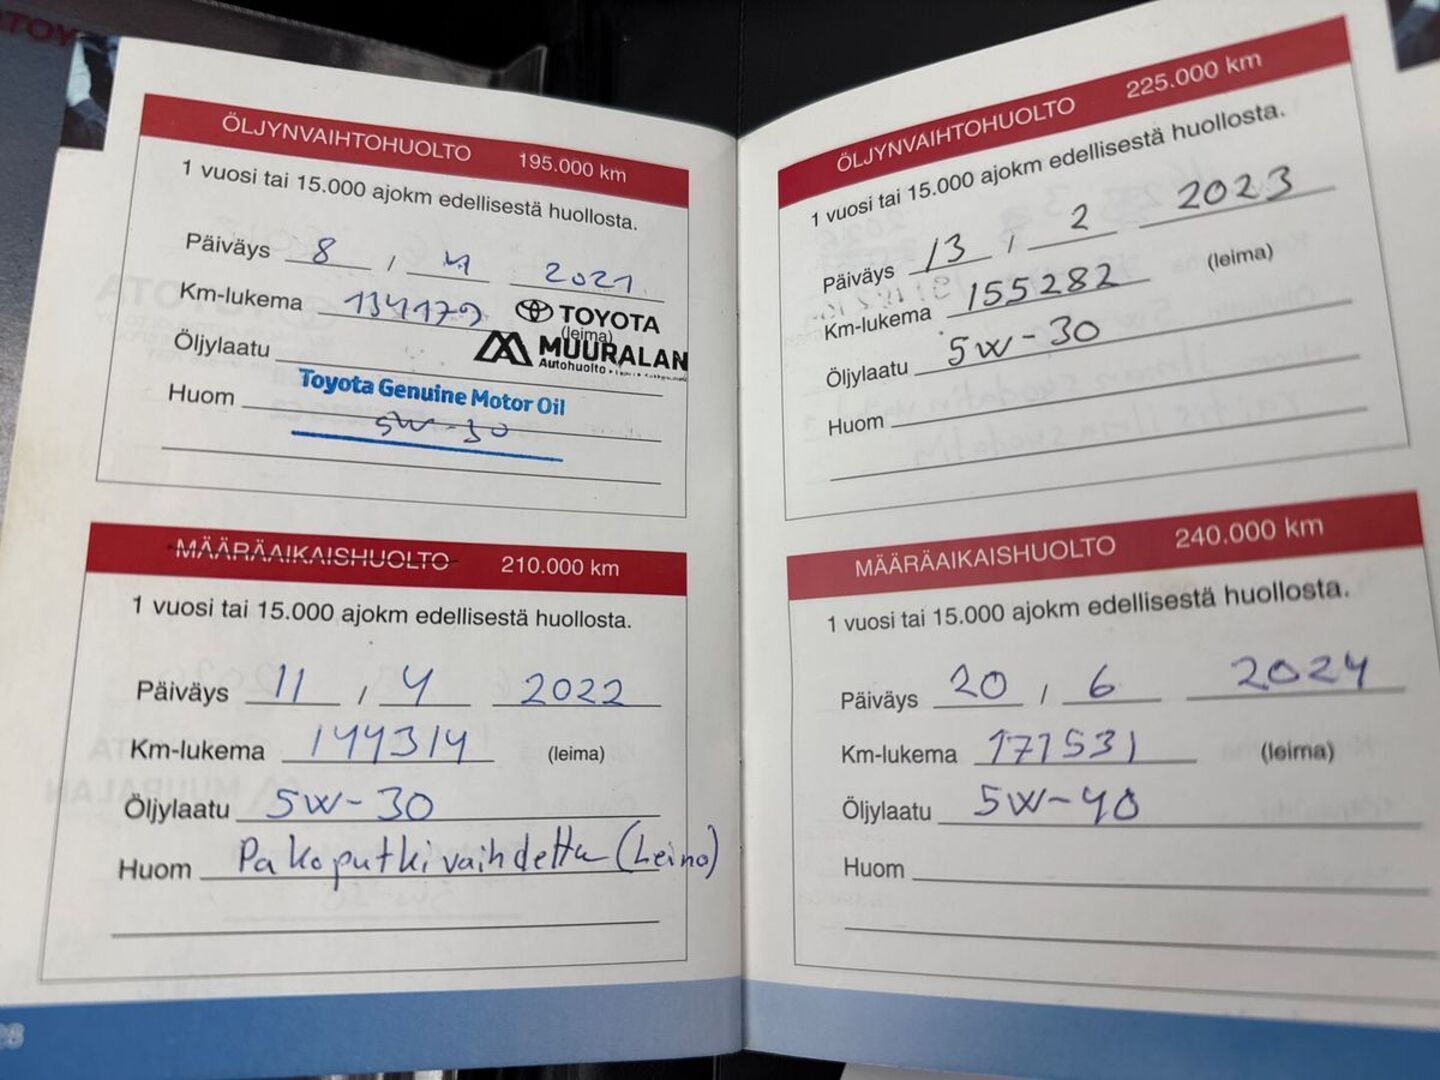 ÖLJYNVAIHTOHUOLTO 195.000 km
1 vuosi tai 15.000 ajokm edellisestä huollosta.
Päiväys 8 / 4 2021
Km-lukema 134179
TOYOTA
(leima)
MUURALAN
Autohuolto
Öljylaatu
Toyota Genuine Motor Oil
Huom 5W-30
MÄÄRÄAIKAISHUOLTO 210.000 km
1 vuosi tai 15.000 ajokm edellisestä huollosta.
Päiväys 11 / 4 2022
Km-lukema 144314 (leima)
Öljylaatu 5W-30
Huom Pakoputki vaihdettu (Leino)
ÖLJYNVAIHTOHUOLTO 225.000 km
1 vuosi tai 15.000 ajokm edellisestä huollosta.
Päiväys 13 / 2 2023
Km-lukema 155282 (leima)
Öljylaatu 5W-30
Huom
MÄÄRÄAIKAISHUOLTO 240.000 km
1 vuosi tai 15.000 ajokm edellisestä huollosta.
Päiväys 20 / 6 2024
Km-lukema 171531 (leima)
Öljylaatu 5W-40
Huom